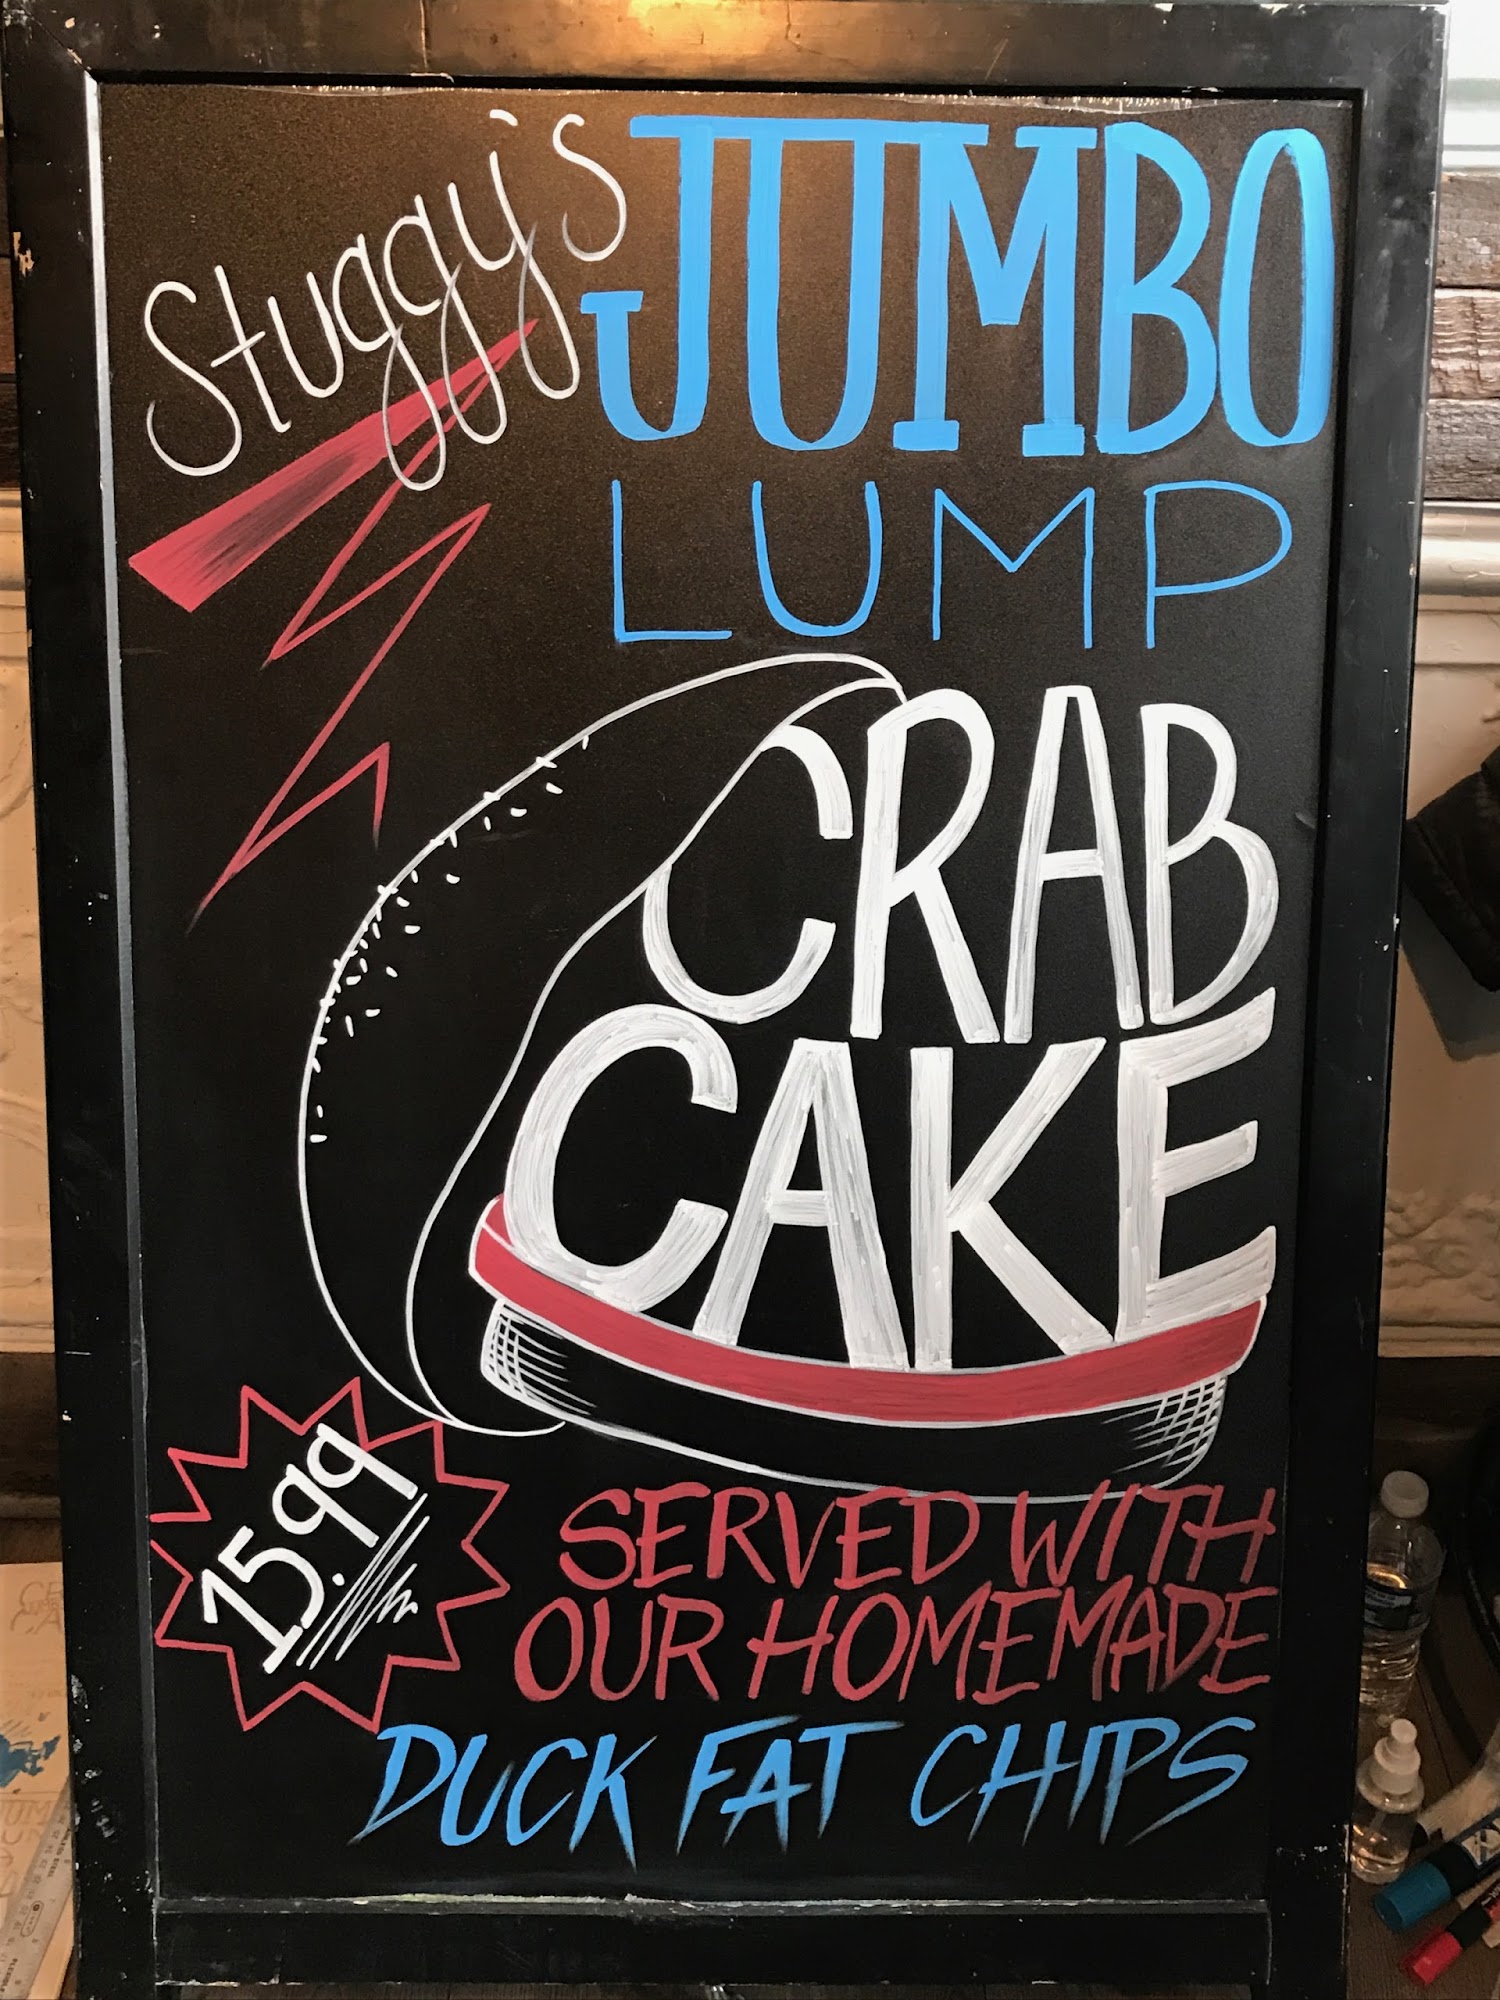 Stuggy's
JUMBO
LUMP
CRAB
CAKE
15.99
SERVED WITH
OUR HOMEMADE
DUCK FAT CHIPS